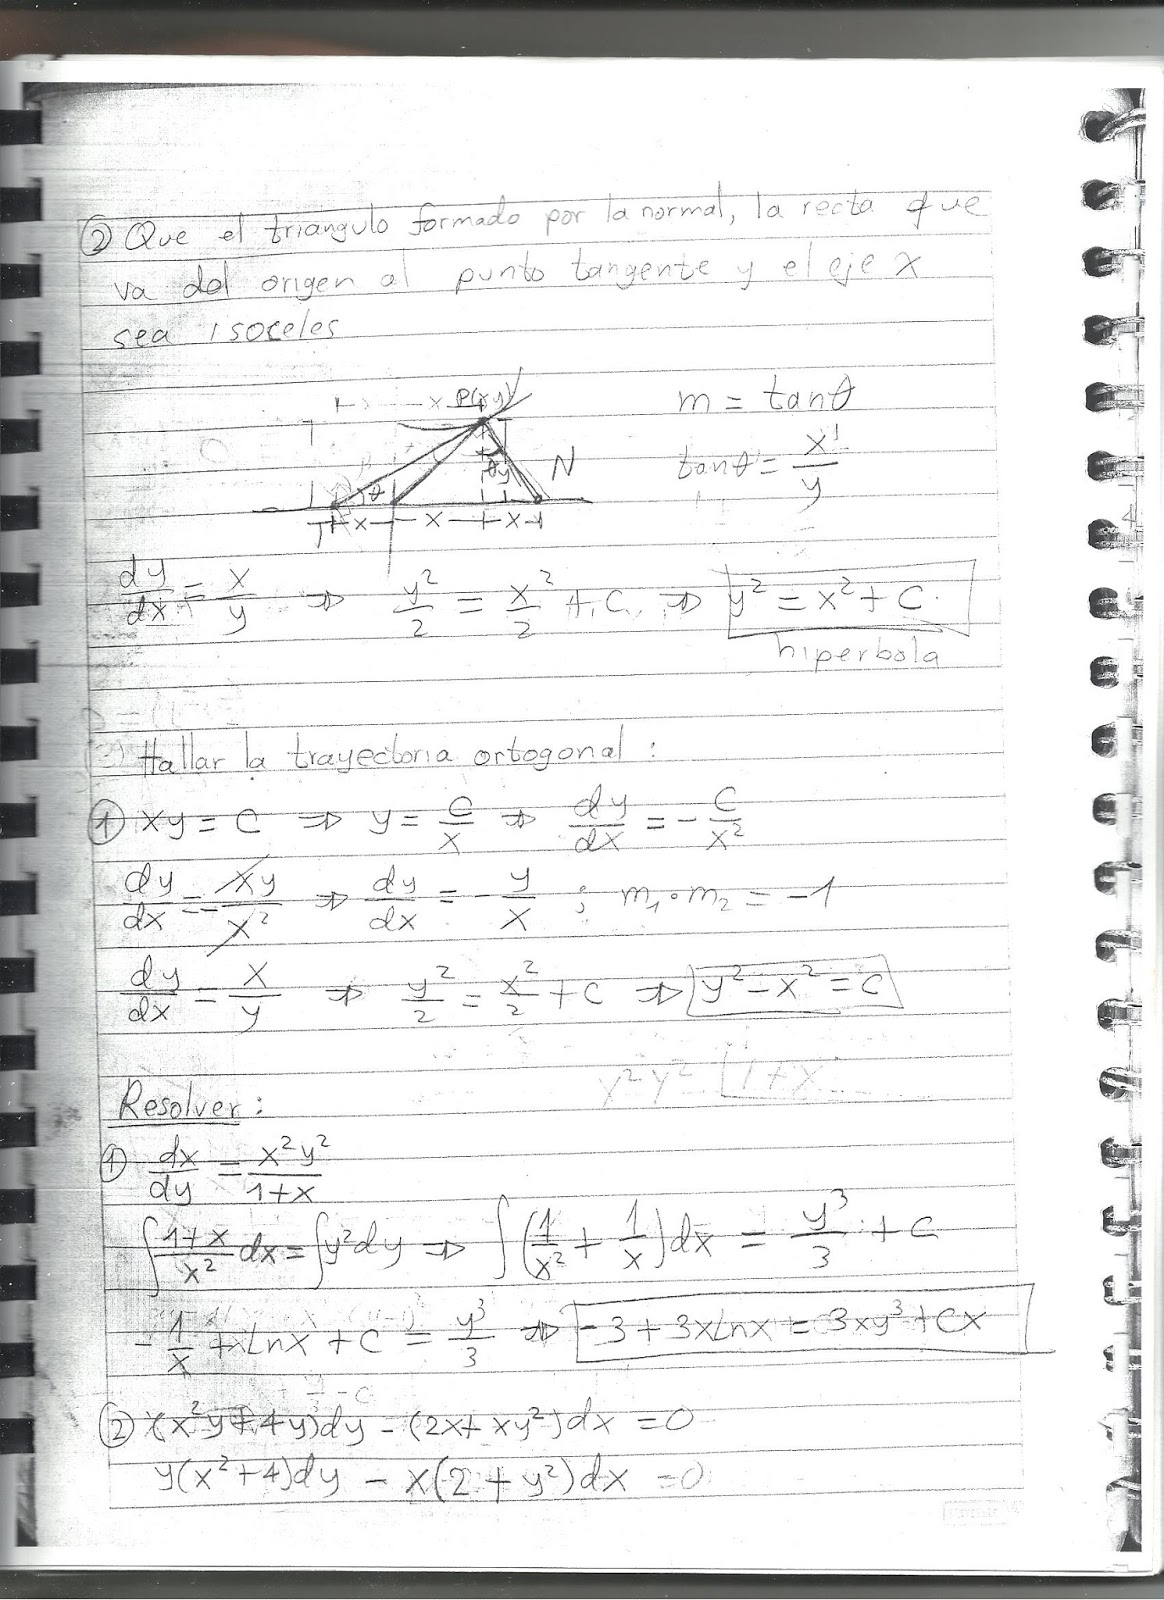 ② Que el triangulo formado por la normal, la recta que
va dal origen al punto tangente y el eje X
sea isoceles
P(x y)
m = tanθ
tanθ = x/y
θ
y
N
θ
T
x
x
x
dy/dx = x/y ⇒ y²/2 = x²/2 + C ⇒ y² = x² + C
hiperbola
Hallar la trayectoria ortogonal:
① xy = C ⇒ y = C/x ⇒ dy/dx = -C/x²
dy/dx = -xy/x² ⇒ dy/dx = -y/x ; m₁∘m₂ = -1
dy/dx = x/y ⇒ y²/2 = x²/2 + C ⇒ y² - x² = C
x²y² 1+x
Resolver:
① dx/dy = x²y²/1+x
∫ 1+x/x² dx = ∫y²dy ⇒ ∫(1/x² + 1/x)dx = y³/3 + C
-1/x + Lnx + C = y³/3 ⇒ -3 + 3xLnx = 3xy³ + Cx
② (x²y+4y)dy - (2x+xy²)dx = 0
y(x²+4)dy - x(2+y²)dx = 0